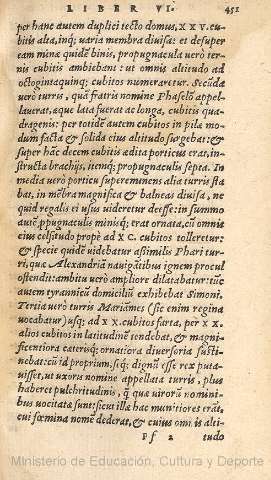 LIBER VI. 451
per hanc autem duplici tecto domus, XXV. cu-
bitis alta, inq; varia membra diuisa: et desuper
eam minæ quidē binis, propugnacula verò ter-
nis cubitis ambiebant: ut omnis altitudo ad
octogintaquinq; cubitos numeraretur. Secūda
verò turris, quā fratris nomine Phaselō appel-
lauerat, æque lata fuerat ac longa, cubitis qua-
dragenis: per totidē autem cubitos in pilæ mo-
dum facta & solida eius altitudo surgebat: &
super hāc decem cubitis ædita porticus erat, in-
structa brachijs, itemq; propugnaculis septa. In
media verò porticu supereminens alia turris sta
bat, in mēbra magnifica & balneas diuisa, ne
quid regalis ei usus uideretur deesse: in summo
autē ꝓpugnaculis minisq; erat ornata, cū omnis
eius celsitudo propè ad XC. cubitos tolleretur:
& specie quidē videbatur assimilis Phari tur-
ri, quæ Alexandriā nauigātibus ignem procul
ostendit: ambitu verò ampliore dilatabatur: tūc
autem tyrannicū domiciliū exhibebat Simoni.
Tertia verò turris Mariāmes (sic enim regina
vocabatur) usq; ad XX. cubitos farta, per XX.
alios cubitos in latitudinē tendebat, & magni-
ficentiora cæterisq; ornatiora diuersoria susti-
nebat: cū id proprium, sibiq; dignū esse rex puta-
uisset, ut uxoris nomine appellata turris, plus
haberet pulchritudinis, ꝗ̃ quæ uirorū nomini-
bus uocitatæ sunt: sicut illæ hac munitiores erāt,
cui fœminæ nomē dederat, & cuius omnis alti-
Ff 2 tudo
Ministerio de Educación, Cultura y Deporte